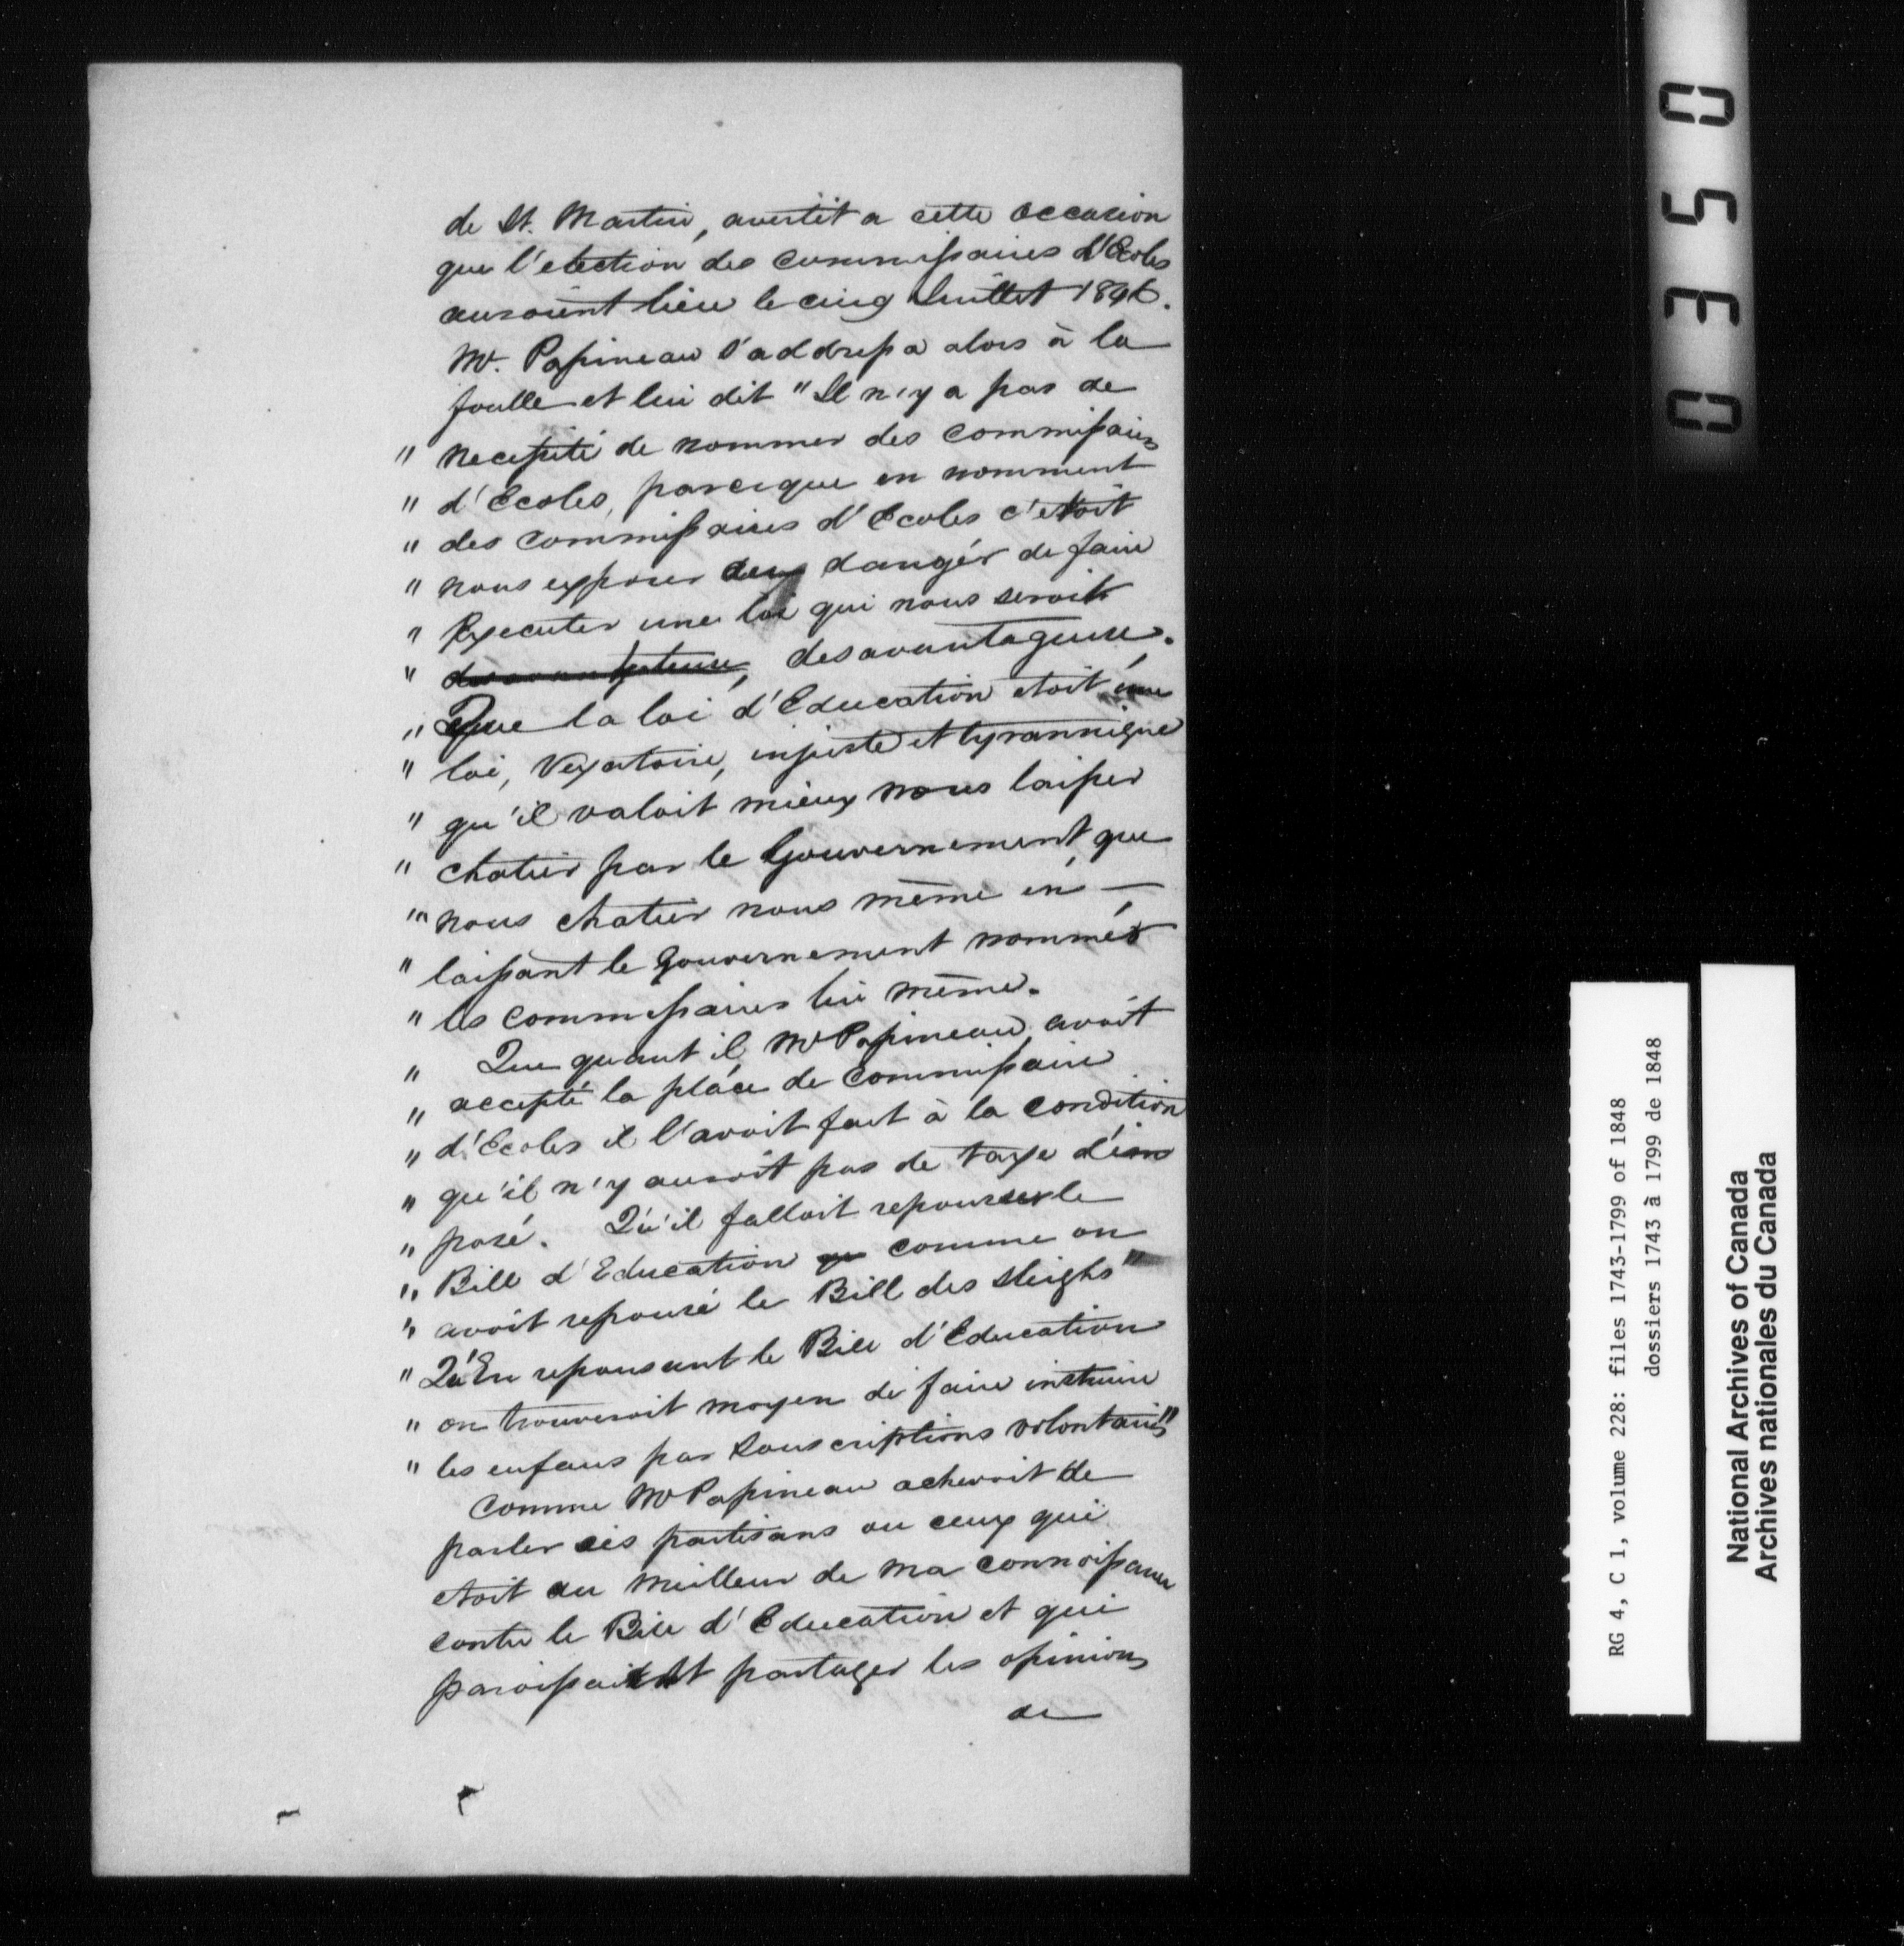 de St. Martin, avertit a cette occasion
que l'election des commissaires d'Ecoles
auroient lieu le cinq Juillet 1846.
Mr. Papineau s'addressa alors à la
foulle et lui dit "Il n'y a pas de
" necessité de nommer des commissaires
" d'Ecoles, parceque en nomment
" des commissaires d'Ecoles c'etoit
" nous exposer au danger de faire
" Executer une loi qui nous seroit
" desavantageuse.
" Que la loi d'Education etoit une
" loi, Vexatoire, injuste et tyrannique
" qu'il valoit mieux nous laisser
" chatier par le Gouvernement que
" nous chatier nous même en —
" laissant le Gouvernement nommér
" les commissaires lui même.
" Que quant il, Mr Papineau avoit
" accepté la place de Commissaire
" d'Ecoles il l'avoit fait à la condition
" qu'il n'y auroit pas de taxe d'im
" posé. Qu'il falloit repousser le
" Bill d'Education comme on
" avoit repousé le Bill des Sleighs"
" Qu'En repousant le Bill d'Education
" on trouveroit moyen de faire instruire
" les enfans par Souscriptions volontaires"
Comme Mr Papineau achevoit de
parler ses partisans ou ceux qui
etoit au meilleur de ma connoissance
contre le Bill d'Education et qui
paroissaient partager les opinions
de
0350
RG 4, C 1, volume 228: files 1743-1799 of 1848
dossiers 1743 à 1799 de 1848
National Archives of Canada
Archives nationales du Canada